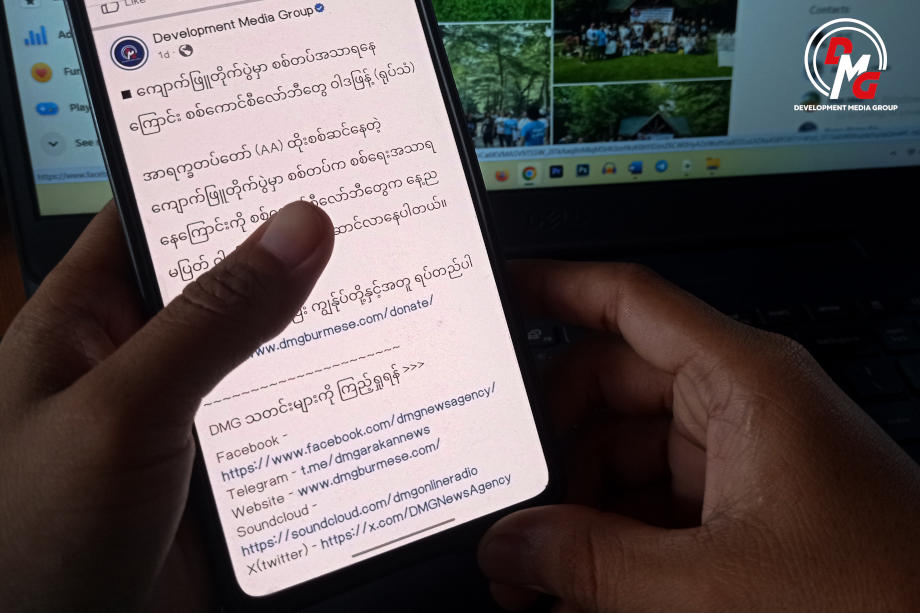 Like
Development Media Group
1d
■ ကျောက်ဖြူတိုက်ပွဲမှာ စစ်တပ်အသာရနေ
ကြောင်း စစ်ကောင်စီလော်ဘီတွေ ဝါဒဖြန့် (ရုပ်သံ)
အာရက္ခတပ်တော် (AA) ထိုးစစ်ဆင်နေတဲ့
ကျောက်ဖြူတိုက်ပွဲမှာ စစ်တပ်က စစ်ရေးအသာရ
နေကြောင်းကို လော်ဘီတွေက နေ့ည
မပြတ် ဆောင်လာနေပါတယ်။
ကျွန်ုပ်တို့နှင့်အတူ ရပ်တည်ပါ
www.dmgburmese.com/donate/
~~~~~~~~~~~~~~~~~~~~~~~
DMG သတင်းများကို ကြည့်ရှုရန် >>>
Facebook -
https://www.facebook.com/dmgnewsagency/
Telegram - t.me/dmgarakannews
Website - www.dmgburmese.com/
Soundcloud -
https://soundcloud.com/dmgonlineradio
X(twitter) - https://x.com/DMGNewsAgency
Ad
Fun
Play
See
https://www.face
Contacts
DELL
DMG
DEVELOPMENT MEDIA GROUP